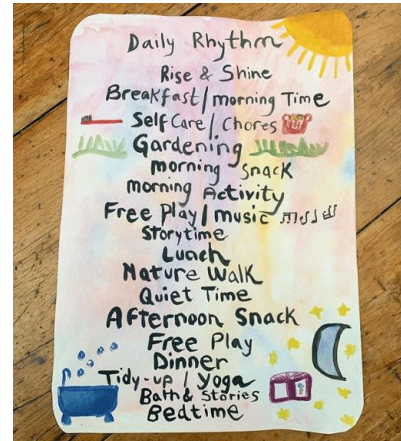 Daily Rhythm
Rise & Shine
Breakfast/morning Time
Self Care/Chores
Gardening
morning Snack
morning Activity
Free Play/music
Storytime
Lunch
Nature Walk
Quiet Time
Afternoon Snack
Free Play
Dinner
Tidy-up/Yoga
Bath & Stories
Bedtime